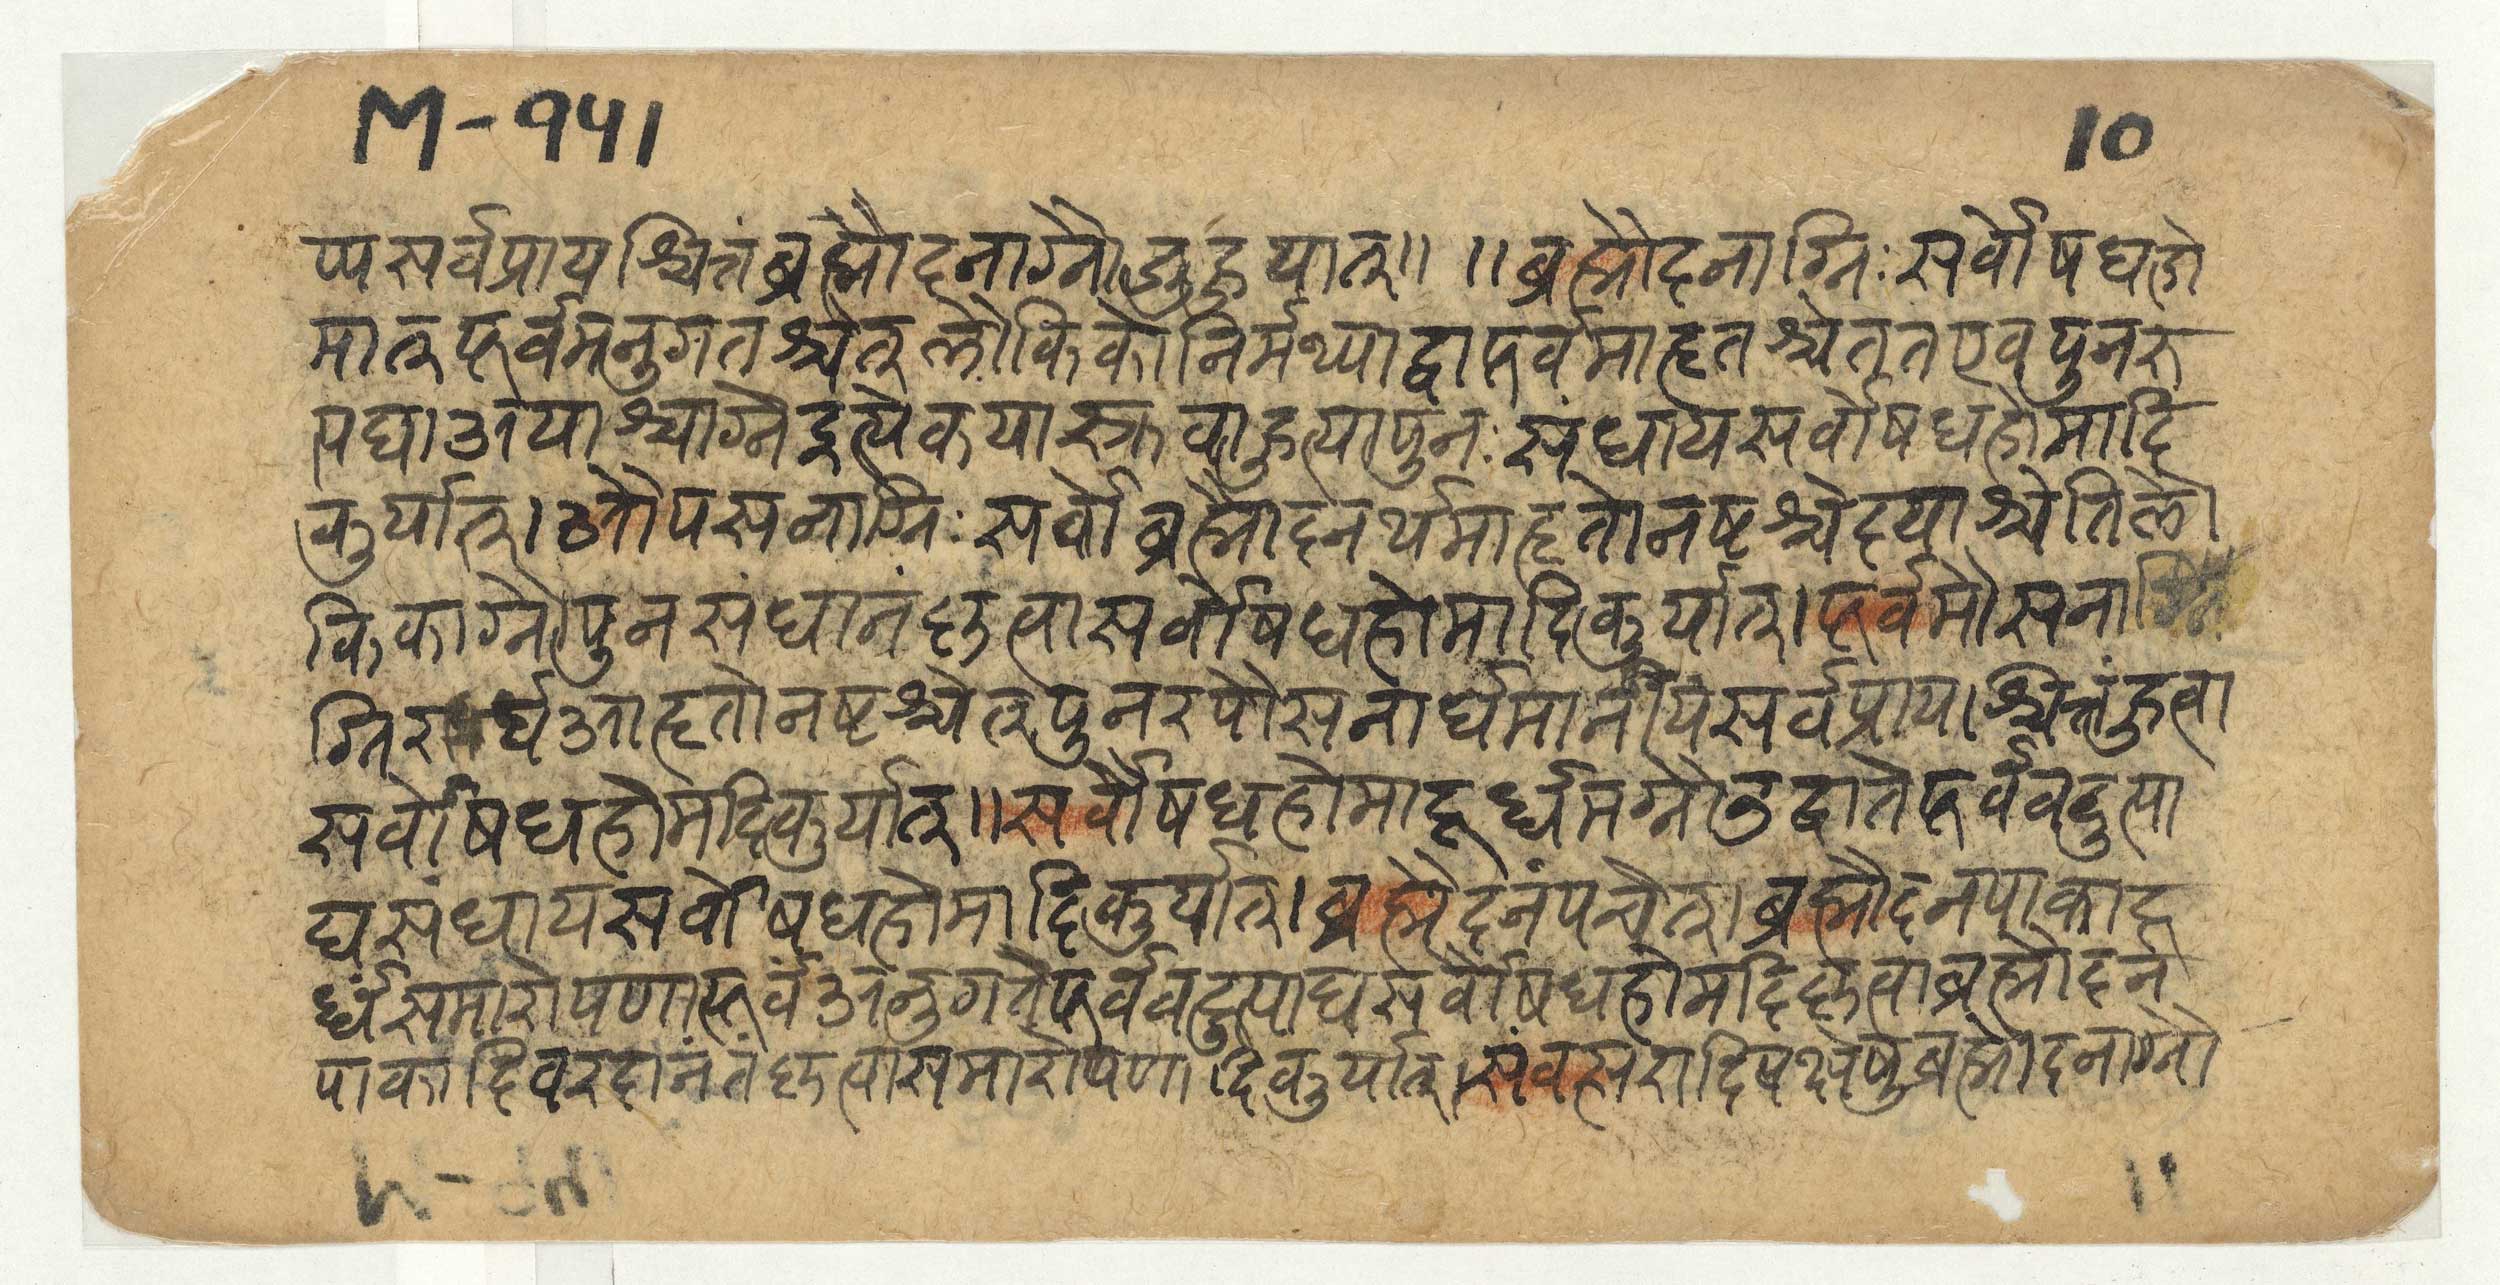 M-१५1
10
प्पसर्वप्रायश्चित्तंब्रह्मौदनाग्नौजुहुयात्॥ ॥ब्रह्मौदनाग्निःसर्वौषधहो
मात्पूर्वमनुगतश्चेत्लौकिकोनिर्मथ्याद्वापूर्वमाहृतश्चेत्ततएवपुनरु
त्पद्याअयाश्चाग्नेइत्येकयास्रुवाहुत्यापुनःसंधायसर्वौषधहोमादि
कुर्यात्।औपसनाग्निःसर्वोब्रह्मौदनर्थमाहृतोनष्टश्चेदयाश्चेतिलौ
किकाग्नौपुनसंधानंकृत्वासर्वौषधहोमादिकुर्यात्।पूर्वमौसना
ग्निर र्धआहृतोनष्टश्चेत्पुनरपौसनार्धमानीयसर्वप्रायाश्चित्तंहुत्वा
सर्वौषधहोमदिकुर्यात्॥सर्वौषधहोमादूर्ध्वमग्नौउद्वातेपूर्ववदुत्पा
द्यसंधायसर्वौषधहोमादिकुर्यात्।ब्रह्मौदनंपचेत्।ब्रह्मौदनपाकादू
र्ध्वंसमारोपणात्पूर्वंअनुगतेपूर्ववदुत्पाद्यसर्वौषधहोमदिकृत्वाब्रह्मौदनं
पाकादिवरदानंतंकृत्वासमारोपणादिकुर्यात्।संवत्सरादिपक्षेषुब्रह्मौदनाग्नौ